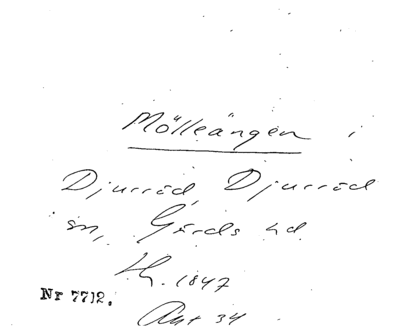 Mölleängen i
Djurröd, Djurröd
sn, Gärds hd
H. 1847
Nr 7712.
Akt 34